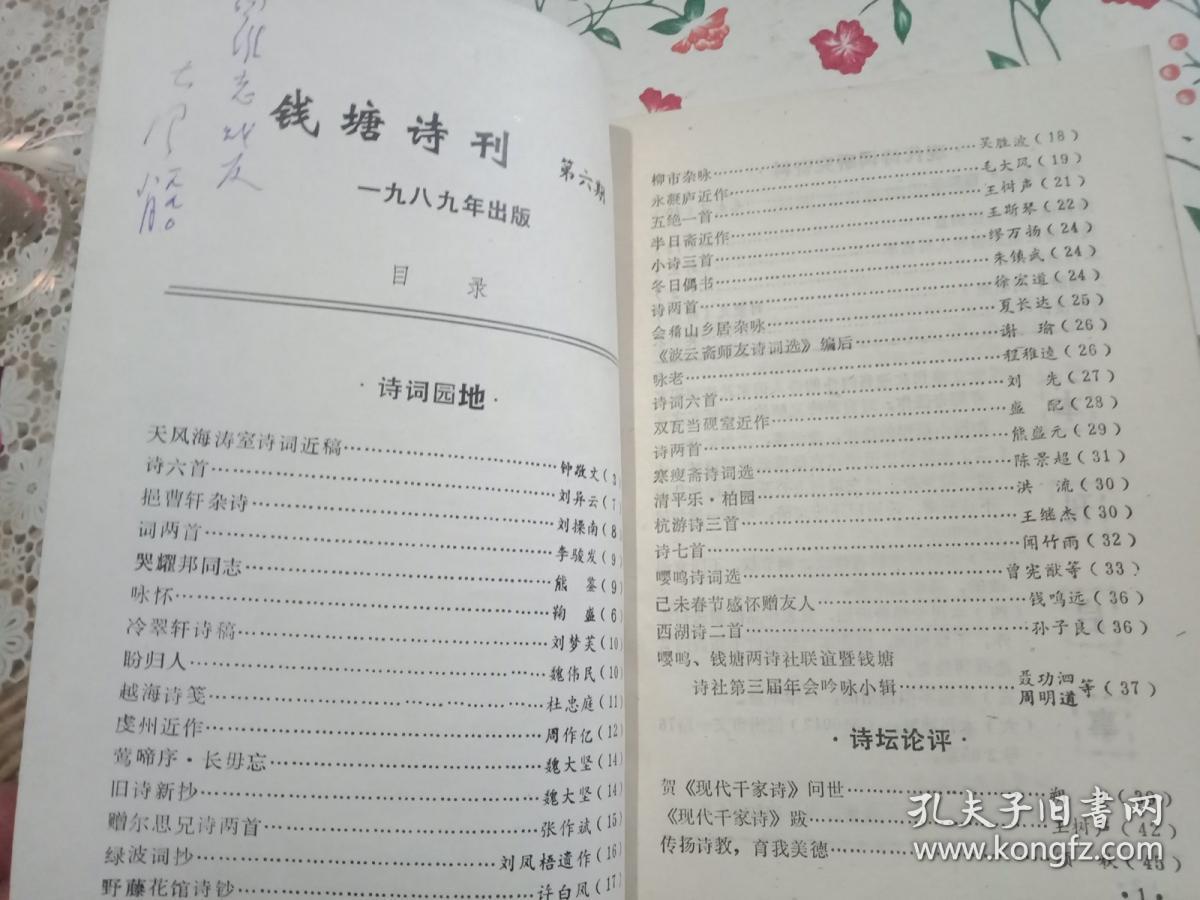 钱塘诗刊
第六期
一九八九年出版
目 录
·诗词园地·
天风海涛室诗词近稿……钟敬文(3
诗六首……刘异云(7
挹曹轩杂诗……刘操南(8
词两首……李骏发(9)
哭耀邦同志……熊 鉴(9)
咏怀……鞠 盛(6)
冷翠轩诗稿……刘梦芙(10)
盼归人……魏伟民(10)
越海诗笺……杜忠庭(11)
虔州近作……周作亿(12)
莺啼序·长毋忘……魏大坚(14)
旧诗新抄……魏大坚(14)
赠尔思兄诗两首……张作斌(15)
绿波词抄……刘凤梧遗作(16)
野藤花馆诗钞……许白凤(17)
柳市杂咏……吴胜波(18)
永凝庐近作……毛大风(19)
五绝一首……王树声(21)
半日斋近作……王斯琴(22)
小诗三首……缪万扬(24)
冬日偶书……朱镇武(24)
诗两首……徐宏道(24)
会稽山乡居杂咏……夏长达(25)
《波云斋师友诗词选》编后……谢 瑜(26)
咏老……程雅逵(26)
诗词六首……刘 先(27)
双瓦当砚室近作……盛 配(28)
诗两首……熊盛元(29)
寒瘦斋诗词选……陈景超(31)
清平乐·柏园……洪 流(30)
杭游诗三首……王继杰(30)
诗七首……闻竹雨(32)
嘤鸣诗词选……曾宪猷等(33)
己未春节感怀赠友人……钱鸣远(36)
西湖诗二首……孙子良(36)
嘤鸣、钱塘两诗社联谊暨钱塘
诗社第三届年会吟咏小辑……聂功泗 周明道 等(37)
·诗坛论评·
贺《现代千家诗》问世……
《现代千家诗》跋……王树声(42)
传扬诗教，育我美德……
·1·
孔夫子旧书网
www.kongfz.com